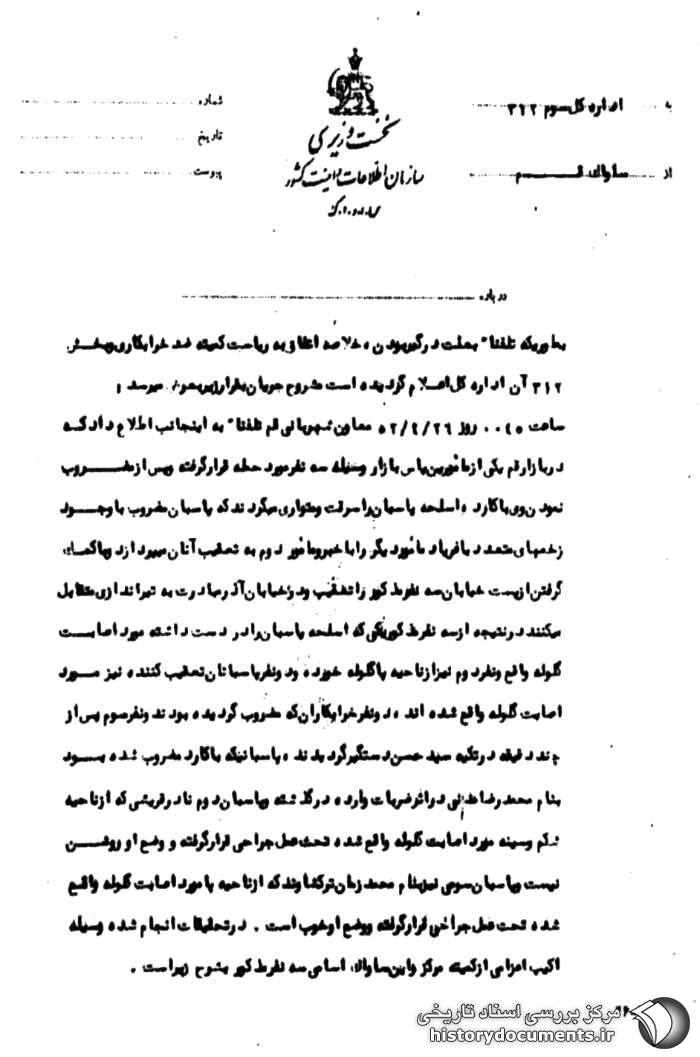 به اداره کل سوم ۳۱۲
شماره
نخست وزیری
تاریخ
سازمان اطلاعات و امنیت کشور
از ساواک قم
پیوست
س.ا.و.ا.ک
درباره
بطوریکه تلفنا" بعلت درگیر بودن خلاصه اتفاق به ریاست کمیته ضد خرابکاری وبخش
۳۱۲ آن اداره کل اعلام گردیده است مشروح جریان بقرار زیر بعرض میرسد :
ساعت ۰۰۴۵ روز ۵۲/۴/۲۶ معاون شهربانی قم تلفنا" به اینجانب اطلاع داد که
در بازار قم یکی از مأمورین پاس بازار وسیله سه نفر مورد حمله قرار گرفته و پس از مضروب
نمودن وی با کارد اسلحه پاسبان را سرقت و متواری میگردند که پاسبان مضروب با وجود
زخمهای متعدد با فریاد مأمور دیگر را با خبر و مأمور دوم به تعقیب آنان میپردازد و با کمک
گرفتن از پست خیابان سه نفر مذکور را تعقیب و در خیابان آذر مبادرت به تیراندازی متقابل
میکنند در نتیجه از سه نفر مذکور یکی که اسلحه پاسبان را در دست داشته مورد اصابت
گلوله واقع و نفر دوم نیز از ناحیه پا گلوله خورده و دو نفر پاسبانان تعقیب کننده نیز مورد
اصابت گلوله واقع شده اند دو نفر خرابکاران که مضروب گردیده بودند و نفر سوم پس از
چند دقیقه در تکیه سید حسن دستگیر گردیدند پاسبانیکه با کارد مضروب شده بود
بنام محمدرضا در اثر ضربات وارده درگذشته و پاسبان دوم نادر قریشی که از ناحیه
شکم و سینه مورد اصابت گلوله واقع شده تحت عمل جراحی قرار گرفته و وضع او روشن
نیست و پاسبان سومی نیز بنام محمد زمان ترکشاوند که از ناحیه پا مورد اصابت گلوله واقع
شده تحت عمل جراحی قرار گرفته و وضع او خوب است . در تحقیقات انجام شده وسیله
اکیپ اعزامی از کمیته مرکز و این ساواک اسامی سه نفر مذکور بشرح زیر است .
مرکز بررسی اسناد تاریخی
historydocuments.ir